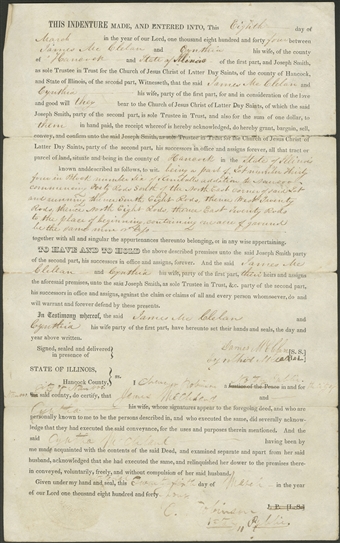 THIS INDENTURE MADE, AND ENTERED INTO, This Eighth day of
March in the year of our Lord, one thousand eight hundred and forty four between
James Mc Clelan and Cynthia his wife, of the county
of Hancock and State of Illinois of the first part, and Joseph Smith,
as sole Trustee in Trust for the Church of Jesus Christ of Latter Day Saints, of the county of Hancock,
and State of Illinois, of the second part, Witnesseth, that the said James Mc Clelan and
Cynthia his wife, party of the first part, for and in consideration of the love
and good will they bear to the Church of Jesus Christ of Latter Day Saints, of which the said
Joseph Smith, party of the second part, is sole Trustee in Trust, and also for the sum of one dollar, to
them in hand paid, the receipt whereof is hereby acknowledged, do hereby grant, bargain, sell,
convey, and confirm unto the said Joseph Smith, as sole Trustee in Trust for the Church of Jesus Christ of
Latter Day Saints, party of the second part, his successors in office and assigns forever, all that tract or
parcel of land, situate and being in the county of Hancock in the State of Illinois
known and described as follows, to wit: being a part of Lot number thirty
four in Block number six of
commencing forty Rods South of the North East corner of said Lot
and running thence South Eight Rods, thence West Twenty
Rods thence North Eight Rods, thence East Twenty Rods
to the place of beginning, containing one acre of ground
be the same more or less
together with all and singular the appurtenances thereunto belonging, or in any wise appertaining.
TO HAVE AND TO HOLD the above described premises unto the said Joseph Smith party
of the second part, his successors in office and assigns, forever. And the said James Mc
Clelan and Cynthia his wife, party of the first part, their heirs and assigns
the aforesaid premises, unto the said Joseph Smith, as sole Trustee in Trust, &c. party of the second part,
his successors in office and assigns, against the claim or claims of all and every person whomsoever, do and
will warrant and forever defend by these presents.
In Testimony whereof, the said James Mc Clelan and
Cynthia his wife, party of the first part, have hereunto set their hands and seals, the day and year
above written.
Signed, sealed and delivered
in presence of
STATE OF ILLINOIS,
Hancock County.
said county, do certify, that
his wife, whose signatures appear to the foregoing deed, and who are
personally known to me to be the persons described in, and who executed the same, did severally acknowledge
that they had executed the said conveyance, for the uses and purposes therein mentioned. And the
said having been by
me made acquainted with the contents of the said Deed, and examined separate and apart from her said
husband, acknowledged that she had executed the same, and relinquished her dower to the premises therein
conveyed, voluntarily, freely, and without compulsion of her said husband.
Given under my hand and seal, this day of March in the year
of our Lord one thousand eight hundred and forty four